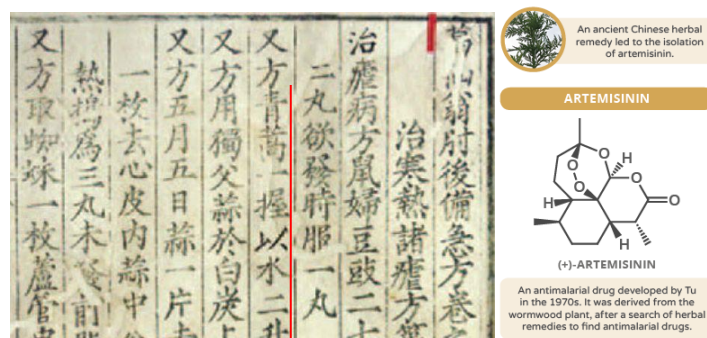 翁肘後備急方卷
治寒熱諸瘧方
治瘧病方鼠婦豆豉二十
二丸欲發時服一丸
又方青蒿一握以水二升
又方用獨父蒜於白炭上
又方五月五日蒜一片去
一枚去心皮內蒜中
熱搗爲三丸未發前
又方取蜘蛛一枚蘆管
An ancient Chinese herbal
remedy led to the isolation
of artemisinin.
ARTEMISININ
O
O
O
H
O
O
H
H
(+)-ARTEMISININ
An antimalarial drug developed by Tu
in the 1970s. It was derived from the
wormwood plant, after a search of herbal
remedies to find antimalarial drugs.